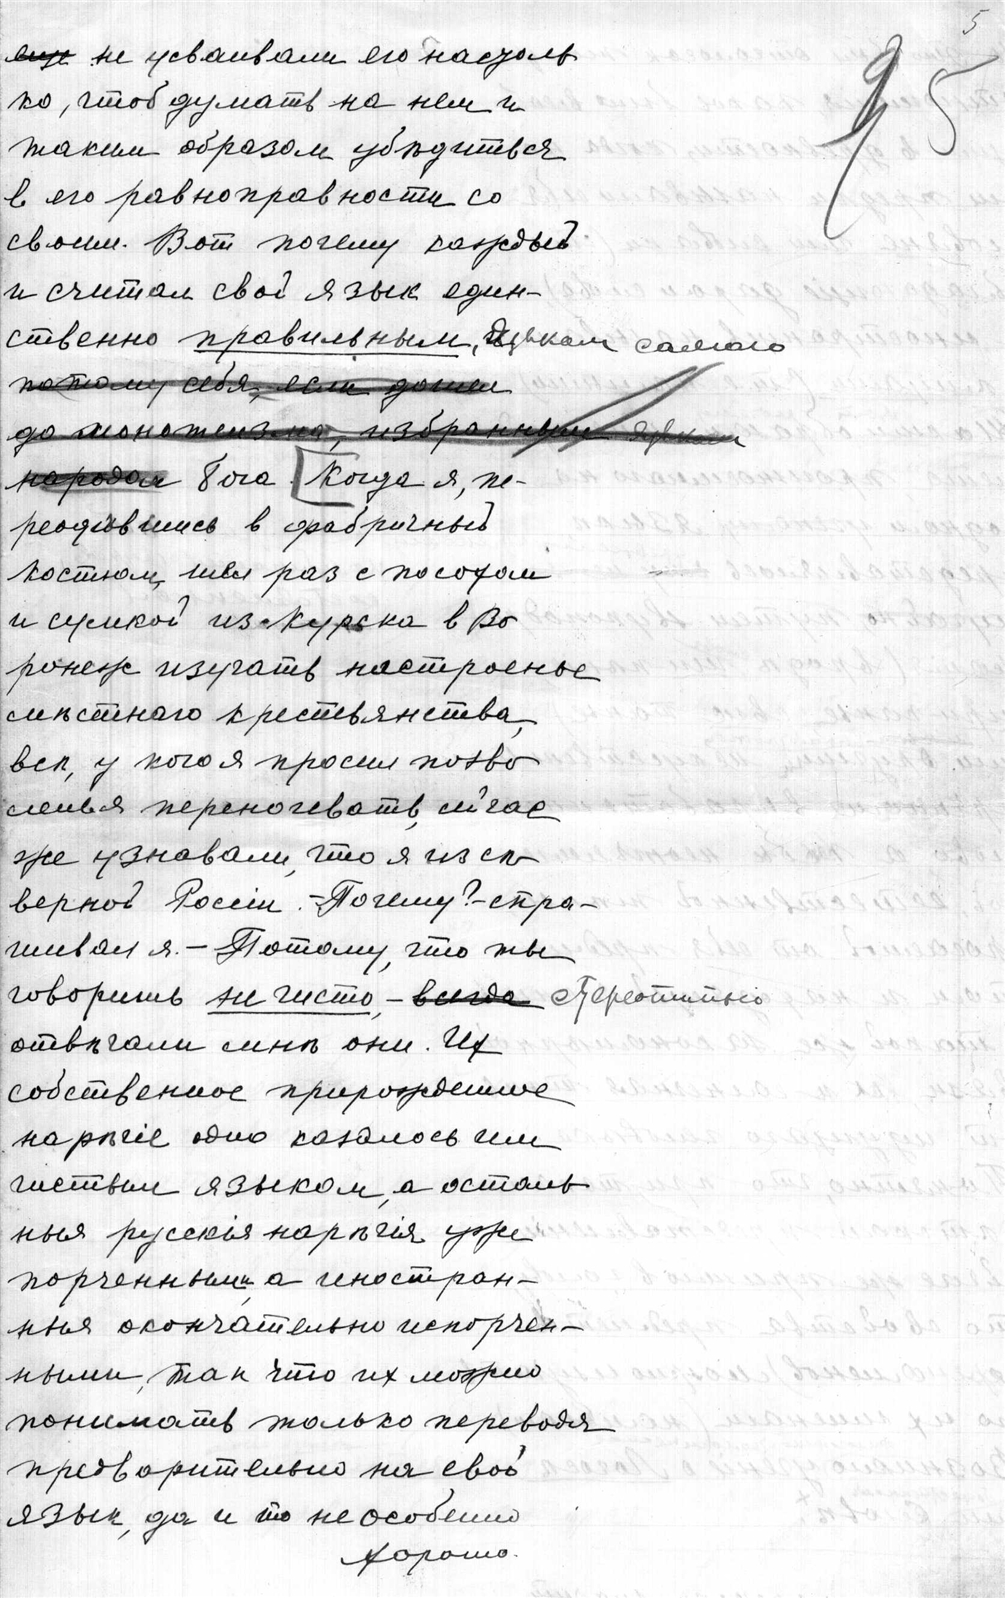 5
5
еще не усваивали его настоль
ко, чтоб думать на нем и
таким образом убѣдиться
в его равноправности со
своим. Вот почему каждый
и считал свой язык един-
ственно правильным, языком самого
потому себя, если дошел
до монотеизма, избранным языком
народом Бога. [Когда я, пе-
реодѣвшись в фабричный
костюм, шел раз с посохом
и сумкой из Курска в Во
ронеж изучать настроенье
мѣстнаго крестьянства,
всѣ, у кого я просил позво
ленья переночевать, сейчас
же узнавали, что я из сѣ
верной Россіи. – Почему? – спра-
шивал я. – Потому, что ты
говоришь не чисто, – всегда
отвѣчали мнѣ они. Их
собственное прирожденное
нарѣчіе одно казалось им
чистым языком, а осталь
ныя русскія нарѣчія уже
порченными, а иностран-
ныя окончательно испорчен-
ными, так что их можно
понимать только переводя
предварительно на свой
язык, да и то не особенно
хорошо.